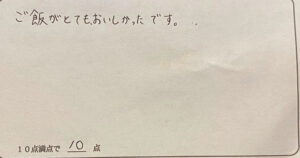 ご飯がとてもおいしかったです。
10点満点で 10 点